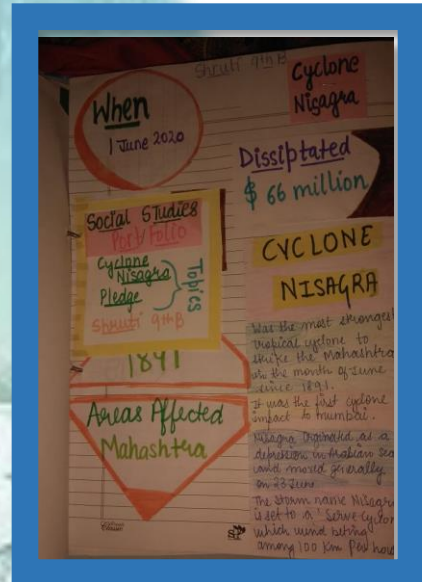 Shruti 9th B
Cyclone
Nisagra
When
1 June 2020
Dissiptated
$ 66 million
Social Studies
Port Folio
Cyclone
Nisagra
Pledge
Topics
Shruti 9th B
1891
Areas Affected
Mahashtra
CYCLONE
NISAGRA
Was the most strongest
tropical cyclone to
strike the Mahashtra
in the month of June
since 1891.
It was the first cyclone
impact to mumbai.
Nisagra Orginated as a
depression in Arabian Sea
and moved generally
on 23 June
The storm name Nisagra
is set to a 'Serve Cyclon
which wind being
among 100 km per hour